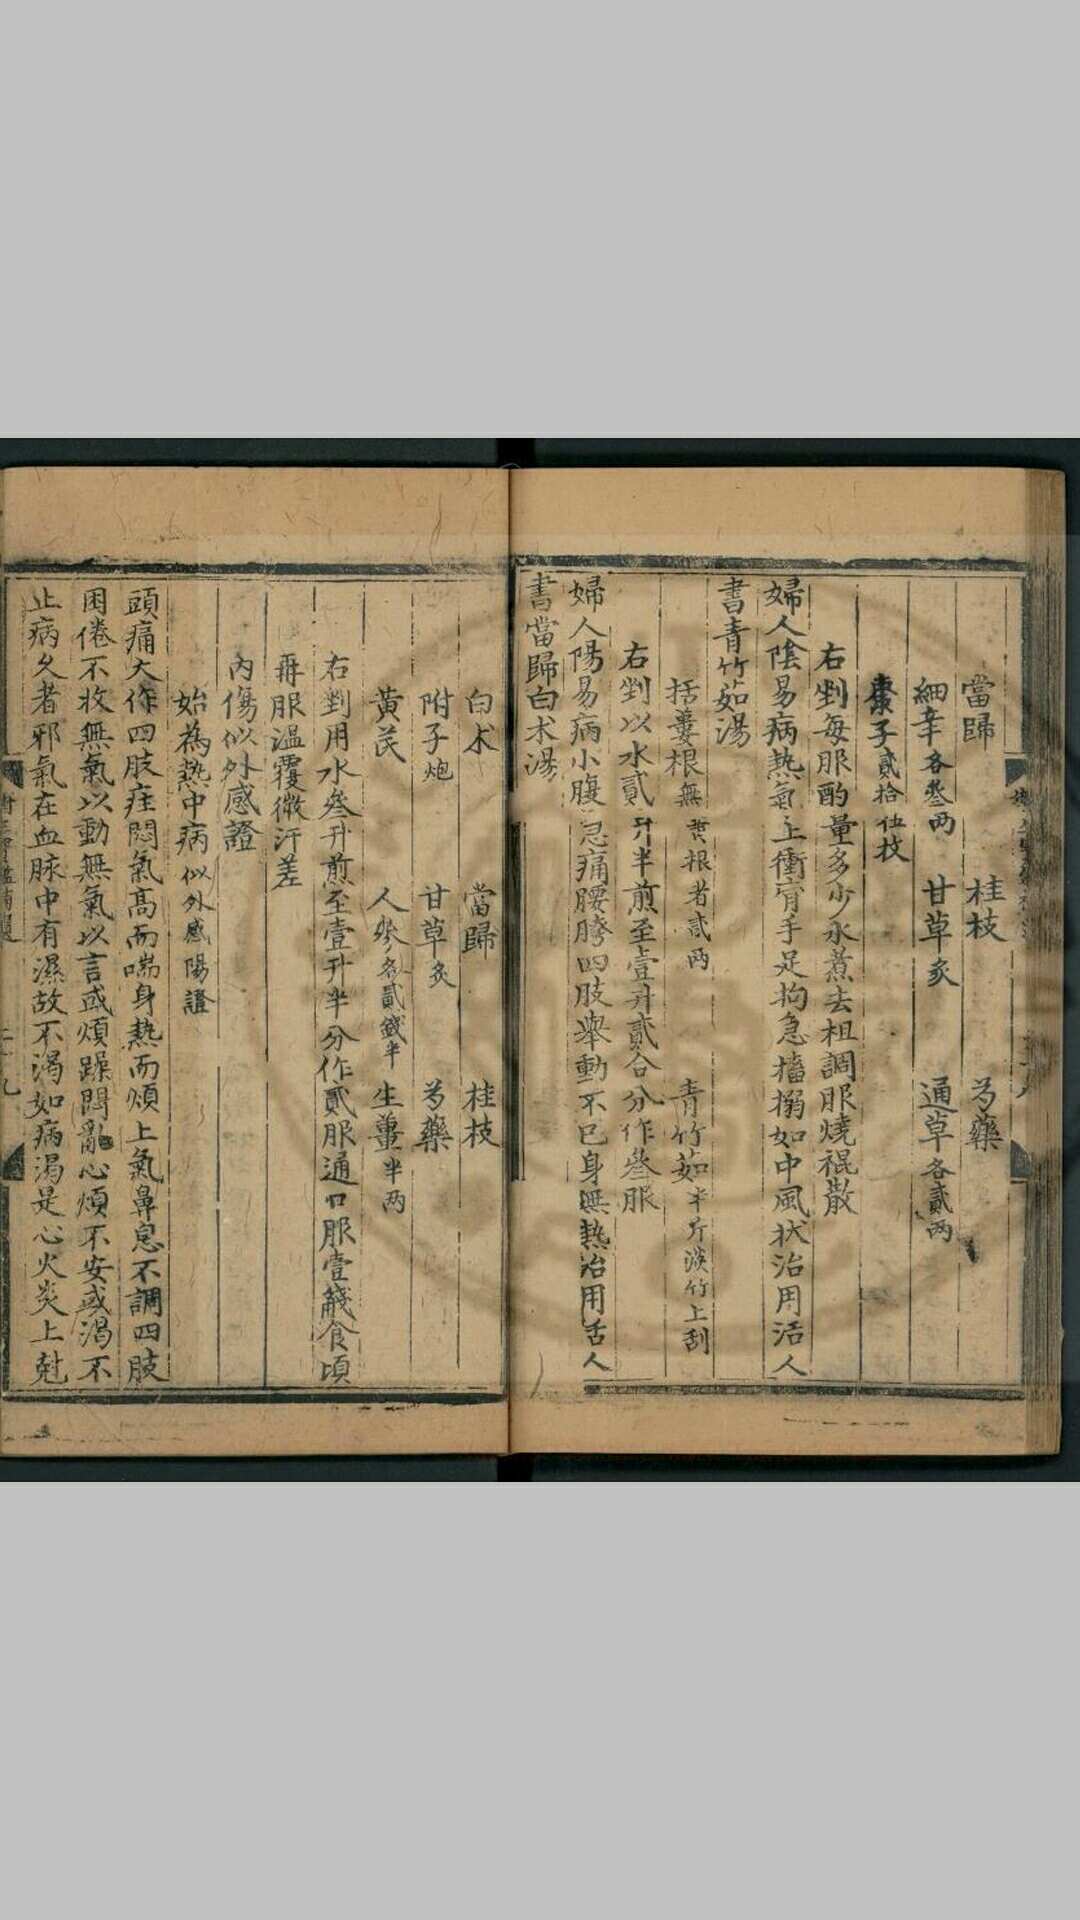 當歸 桂枝 芍藥
細辛各叄两 甘草炙 通草各貳两
棗子貳拾伍枚
右剉每服酌量多少水煮去柤調服燒裩散
婦人陰易病熱氣上衝胷手足拘急搐搦如中風状治用活人
書青竹茹湯
括蔞根無黄根者貳两 青竹茹半斤淡竹上刮
右剉以水貳升半煎至壹升貳合分作叄服
婦人陽易病小腹急痛腰胯四肢舉動不已身無熱治用活人
書當歸白术湯
白术 當歸 桂枝
附子炮 甘草炙 芍藥
黄芪 人參各貳錢半 生薑半两
右剉用水叄升煎至壹升半分作貳服通口服壹盞食頃
再服温覆微汗差
內傷似外感證
始為熱中病似外感陽證
頭痛大作四肢疰悶氣髙而喘身熱而煩上氣鼻息不調四肢
困倦不收無氣以動無氣以言或煩躁悶亂心煩不安或渴不
止病久者邪氣在血脉中有濕故不渴如病渴是心火炎上尅